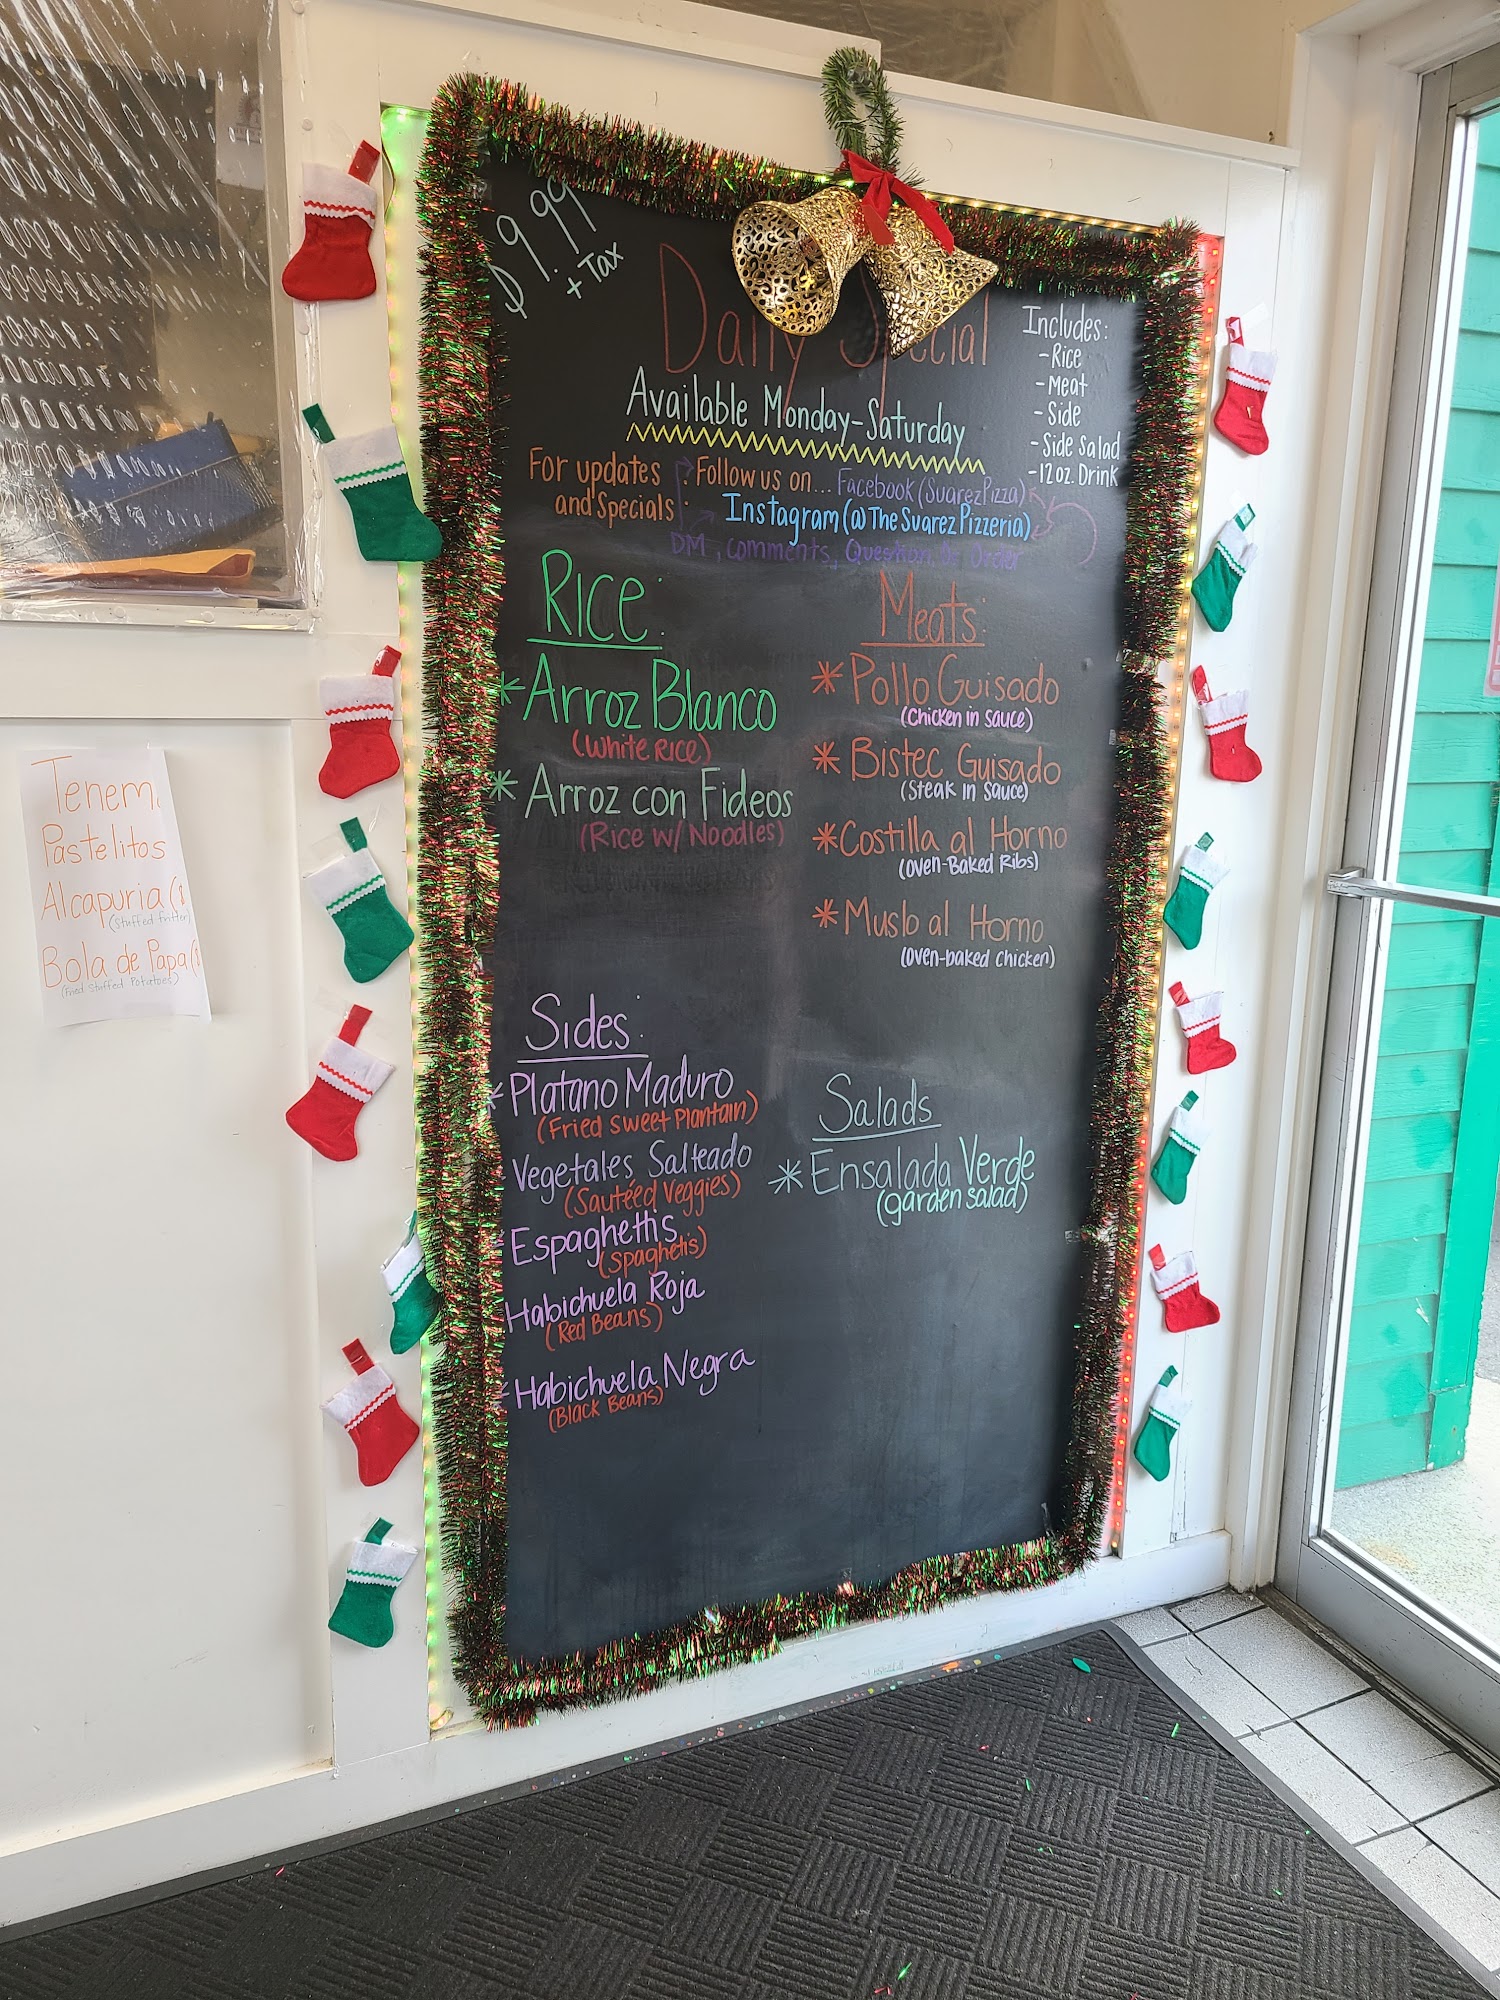 $9.99
+ Tax
Daily Special
Available Monday-Saturday
Includes:
-Rice
-Meat
-Side
-Side Salad
-12oz. Drink
For updates
and Specials :
Follow us on... Facebook (SuarezPizza)
Instagram (@TheSuarezPizzeria)
DM, comments, Question &
Rice:
*Arroz Blanco
(White Rice)
*Arroz con Fideos
(Rice w/ Noodles)
Meats:
*Pollo Guisado
(Chicken in sauce)
*Bistec Guisado
(Steak in sauce)
*Costilla al Horno
(Oven-Baked Ribs)
*Muslo al Horno
(Oven-baked chicken)
Sides:
*Platano Maduro
(Fried Sweet Plantain)
Vegetales Salteado
(Sautéed Veggies)
*Espaghettis
(Spaghetis)
Habichuela Roja
(Red Beans)
*Habichuela Negra
(Black Beans)
Salads
*Ensalada Verde
(garden salad)
Tenem
Pastelitos
Alcapuria ($
(Stuffed fritter)
Bola de Papa ($
(Fried Stuffed Potatoes)